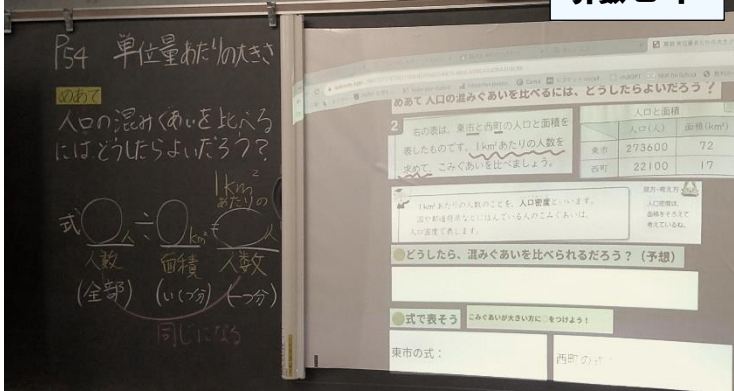 P54 単位量あたりの大きさ
めあて
人口の混みぐあいを比べる
にはどうしたらよいだろう?
1km²
あたりの
式 人 ÷ km² = 人
人数 面積 人数
(全部) (いくつ分) (一つ分)
同じになる
めあて 人口の混みぐあいを比べるには、どうしたらよいだろう?
2 右の表は、東市と西町の人口と面積を
表したものです。1km²あたりの人数を
求めて、こみぐあいを比べましょう。
人口と面積
人口(人) 面積(km²)
東市 273600 72
西町 22100 17
1km²あたりの人数のことを、人口密度といいます。
国や都道府県などに住んでいる人のこみぐあいは、
人口密度で表します。
見方・考え方
人口密度は、
面積をそろえて
考えているね。
どうしたら、混みぐあいを比べられるだろう?(予想)
式で表そう
こみぐあいが大きい方に○をつけよう!
東市の式:
西町の式: